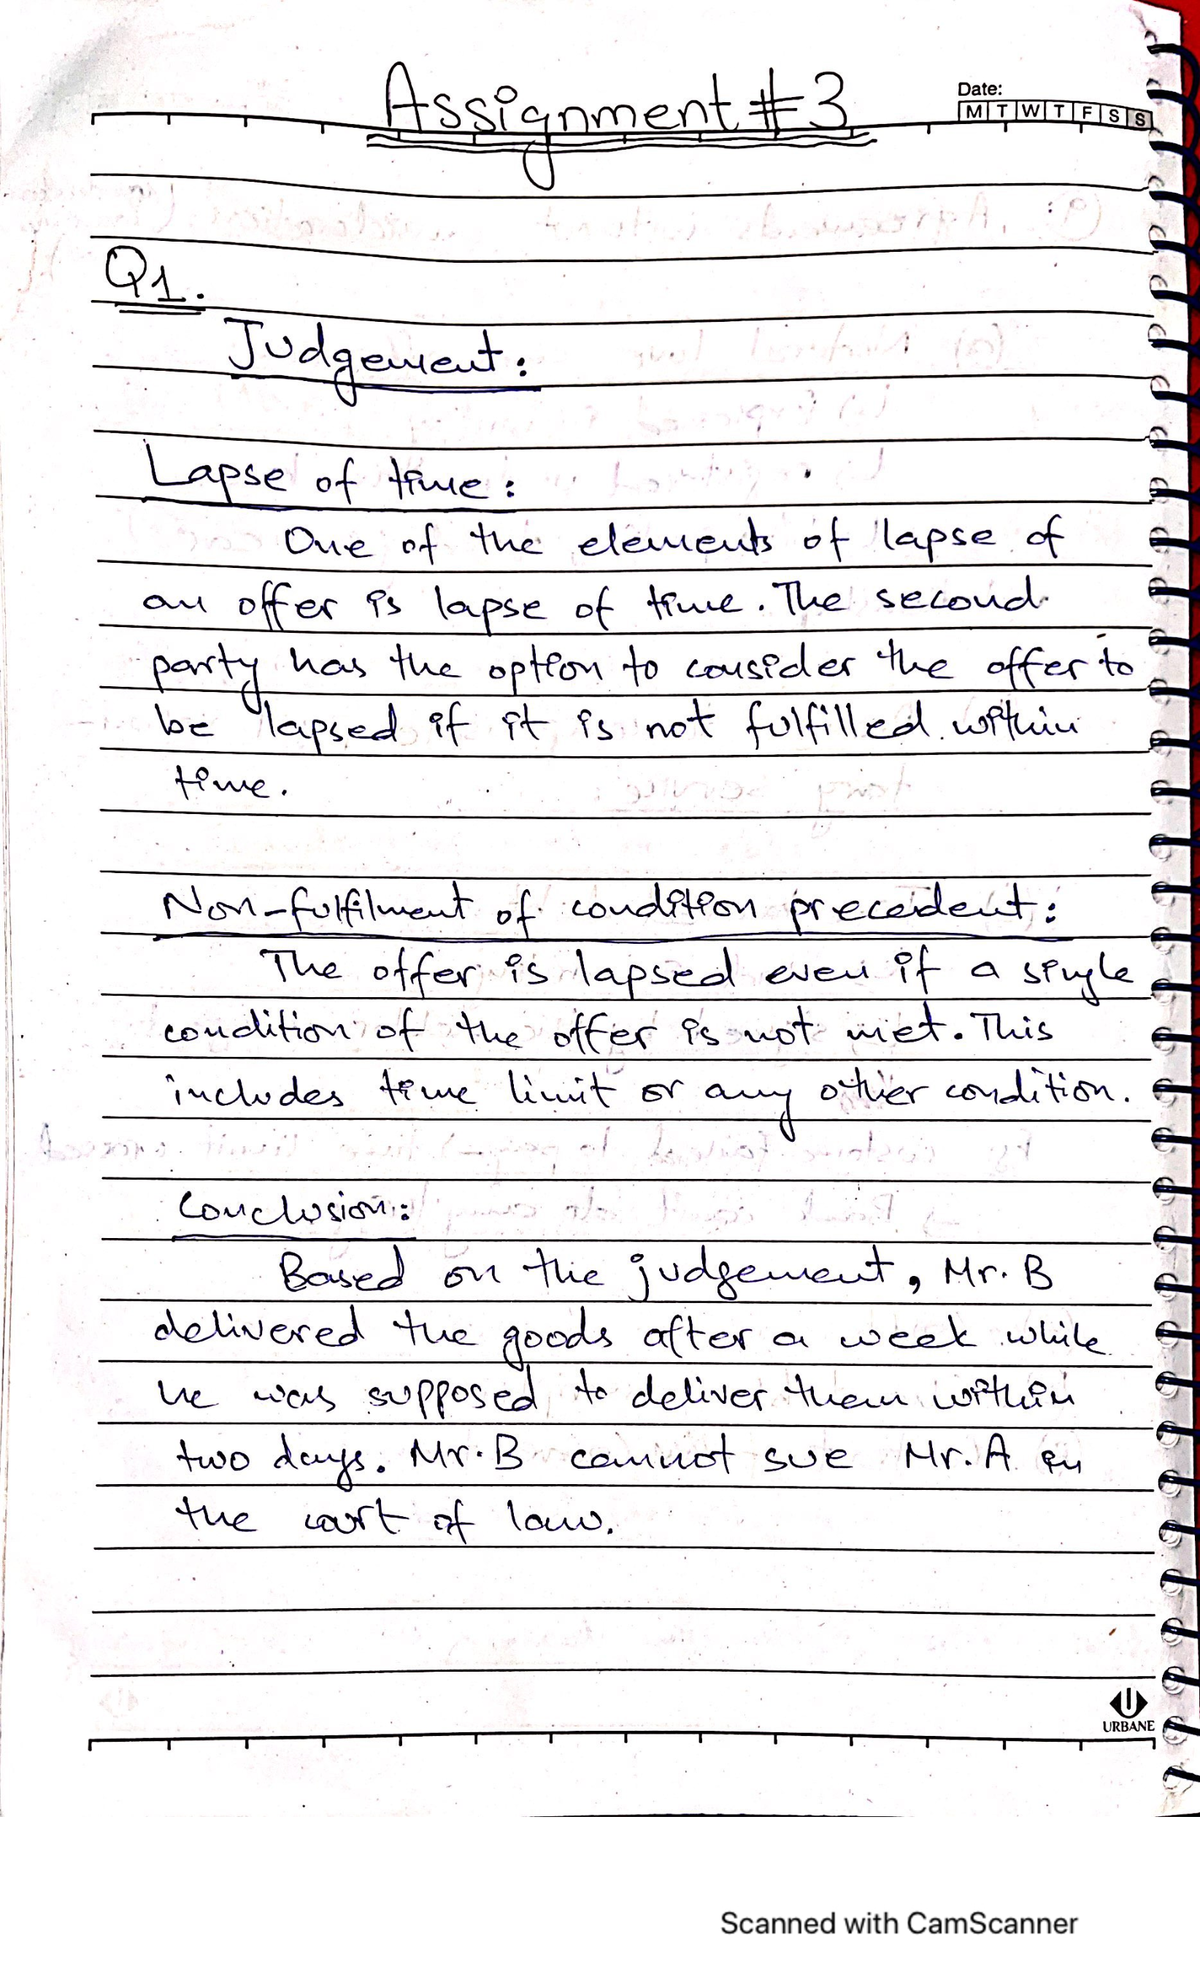 Assignment #3
Date:
M T W T F S S
Q1.
Judgement:
Lapse of time:
One of the elements of lapse of
an offer is lapse of time. The second
party has the option to consider the offer to
be lapsed if it is not fulfilled within
time.
Non-fulfilment of condition precedent:
The offer is lapsed even if a single
condition of the offer is not met. This
includes time limit or any other condition.
Conclusion:
Based on the judgement, Mr. B
delivered the goods after a week while
he was supposed to deliver them within
two days. Mr. B cannot sue Mr. A in
the court of law.
URBANE
Scanned with CamScanner